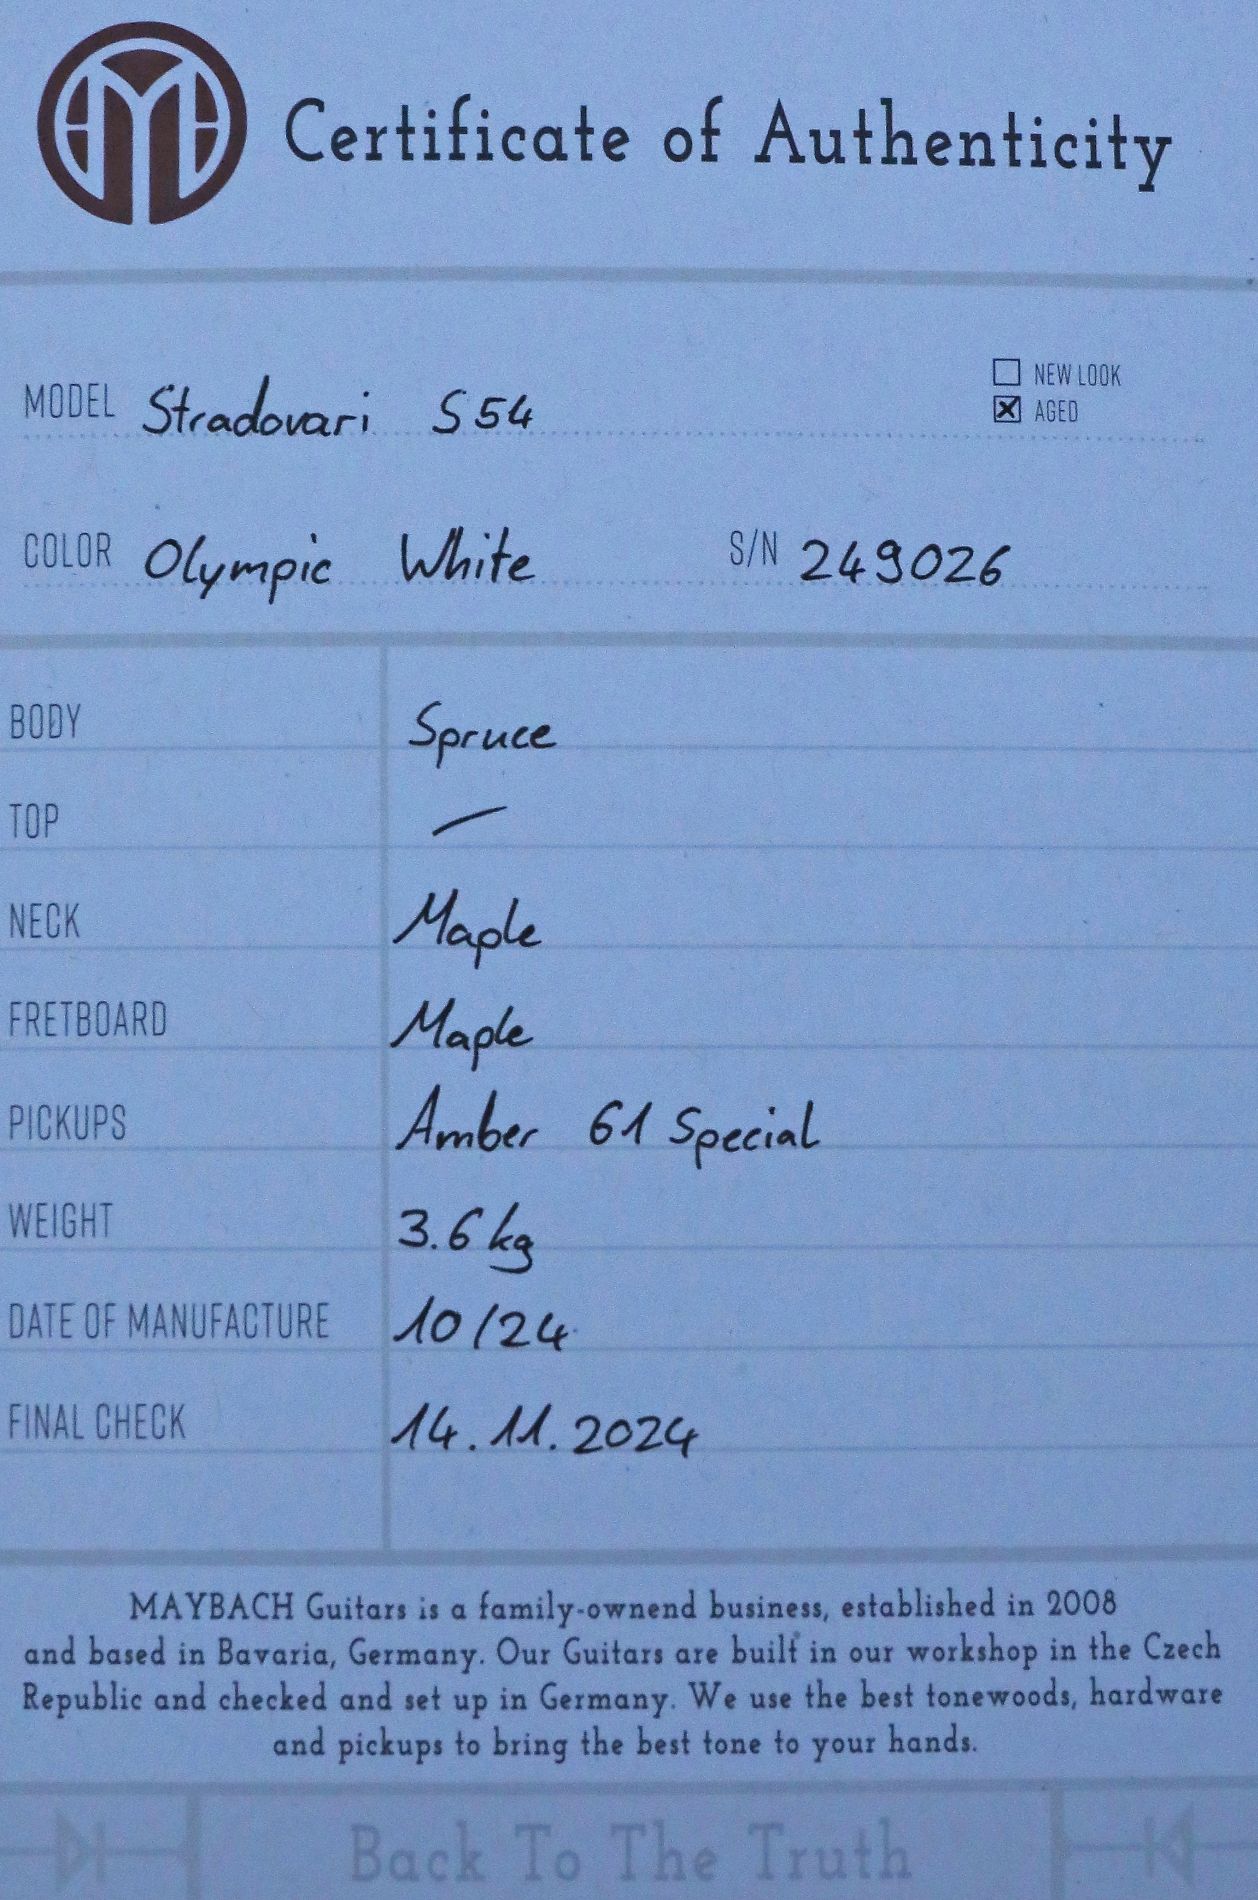 Certificate of Authenticity
NEW LOOK
MODEL Stradovari S54 AGED
COLOR Olympic White S/N 249026
BODY Spruce
TOP —
NECK Maple
FRETBOARD Maple
PICKUPS Amber 61 Special
WEIGHT 3.6 kg
DATE OF MANUFACTURE 10/24
FINAL CHECK 14.11.2024
MAYBACH Guitars is a family-ownend business, established in 2008
and based in Bavaria, Germany. Our Guitars are built in our workshop in the Czech
Republic and checked and set up in Germany. We use the best tonewoods, hardware
and pickups to bring the best tone to your hands.
Back To The Truth